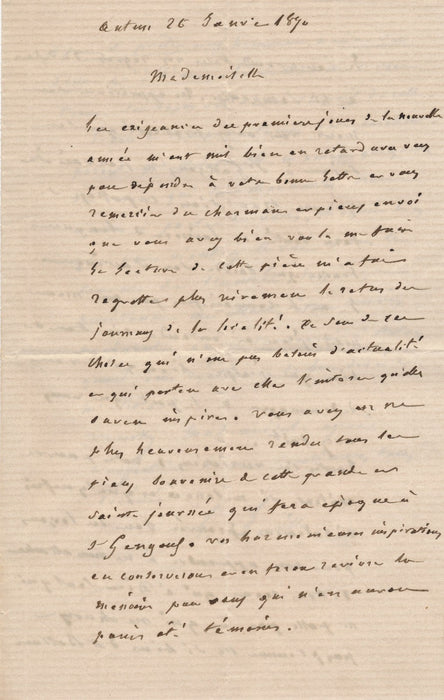 Autun 26 Janvier 1890
Mademoiselle
Les exigences des premiers jours de la nouvelle
année m'ont mis bien en retard avec vous
pour répondre à votre bonne lettre et vous
remercier du charmant et pieux envoi
que vous avez bien voulu me faire
La lecture de cette pièce m'a fait
regretter plus vivement le refus des
journaux de la localité. Ce sont de ces
choses qui n'ont pas besoin d'actualité
et qui portent avec elles l'intérêt qu'elles
savent inspirer. vous avez on ne
plus heureusement rendu tous les
pieux souvenirs de cette grande et
sainte journée qui fera époque à
St Gengoux. vos harmonieuses inspirations
en conserveront et en feront revivre la
mémoire pour ceux qui n'en auront
point été témoins.